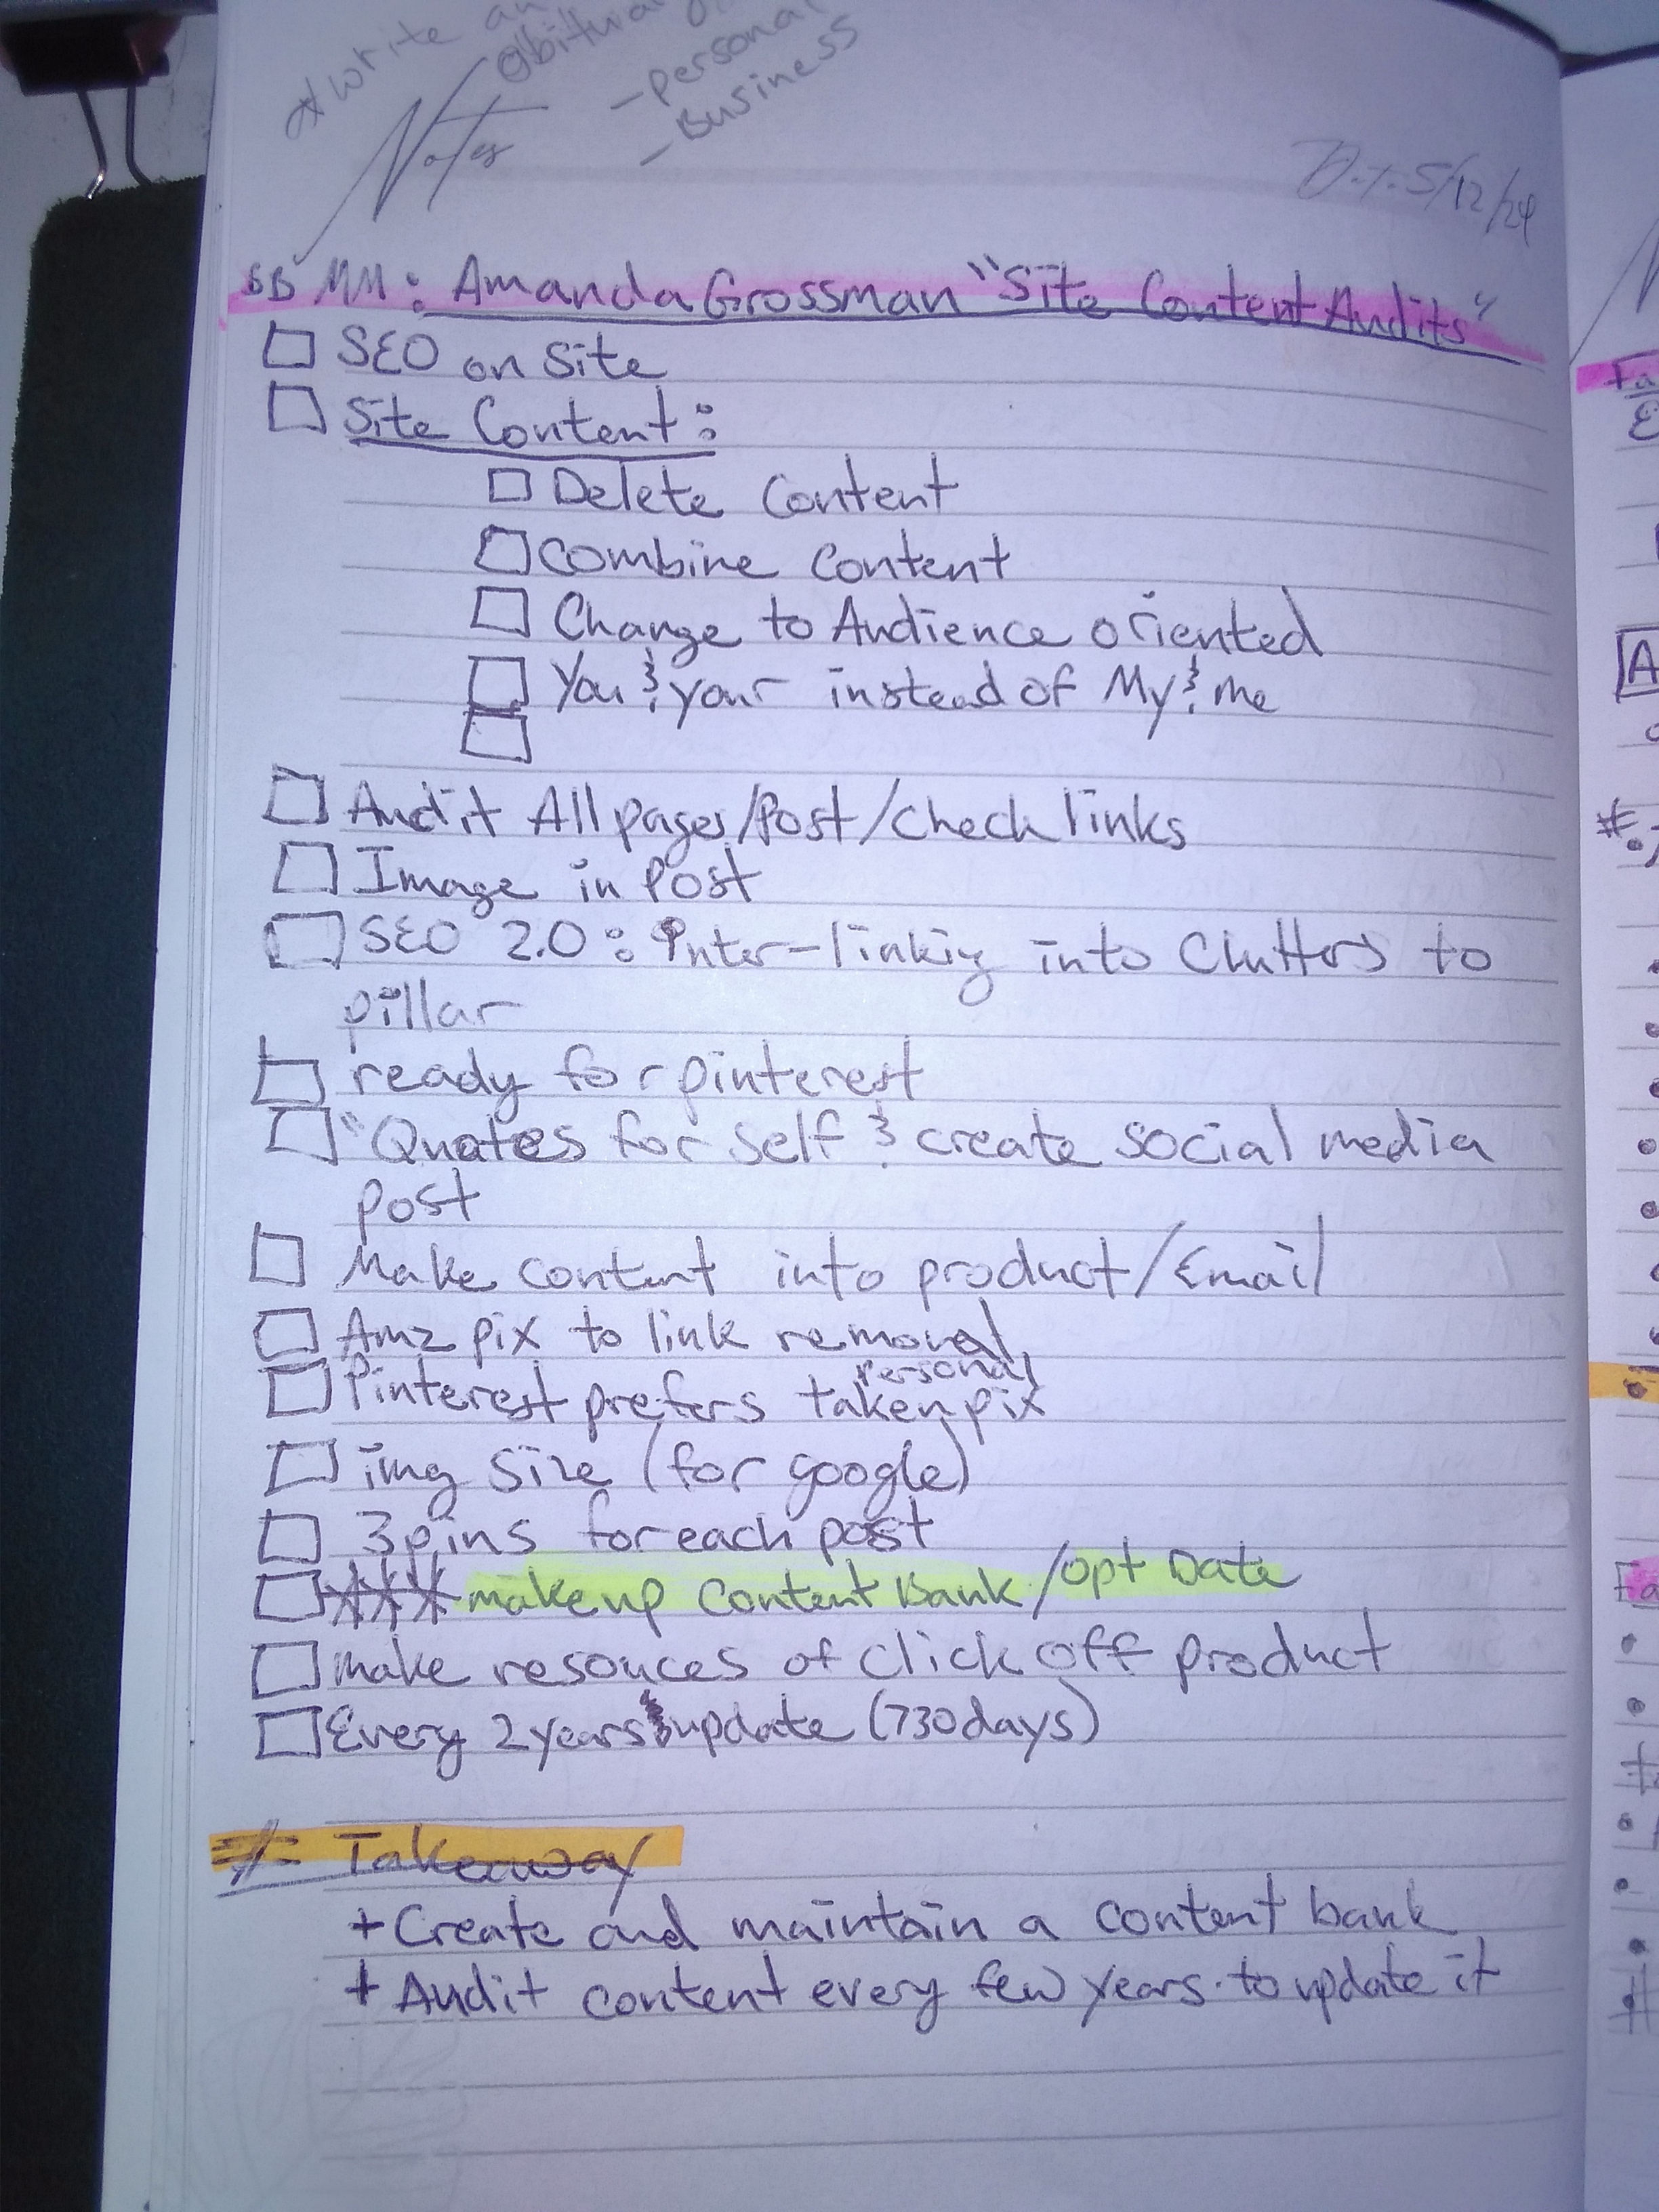 *write an
obituary
- personal
- Business
Notes
5/12/24
BB MM: Amanda Grossman "Site Content Audits"
SEO on site
Site Content:
Delete Content
Combine Content
Change to Audience oriented
You & your instead of My & me
Audit All pages/Post/check links
Image in Post
SEO 2.0: Inter-linkig into Clutters to
pillar
ready for pinterest
"Quotes for self & create social media
post
Make content into product/Email
Amz pix to link removal
personal
Pinterest prefers taken pix
img size (for google)
3 pins for each post
*** make up Content Bank/opt Date
make resouces of click off product
Every 2 years & update (730 days)
Takeaway
+ Create and maintain a content bank
+ Audit content every few years. to update it